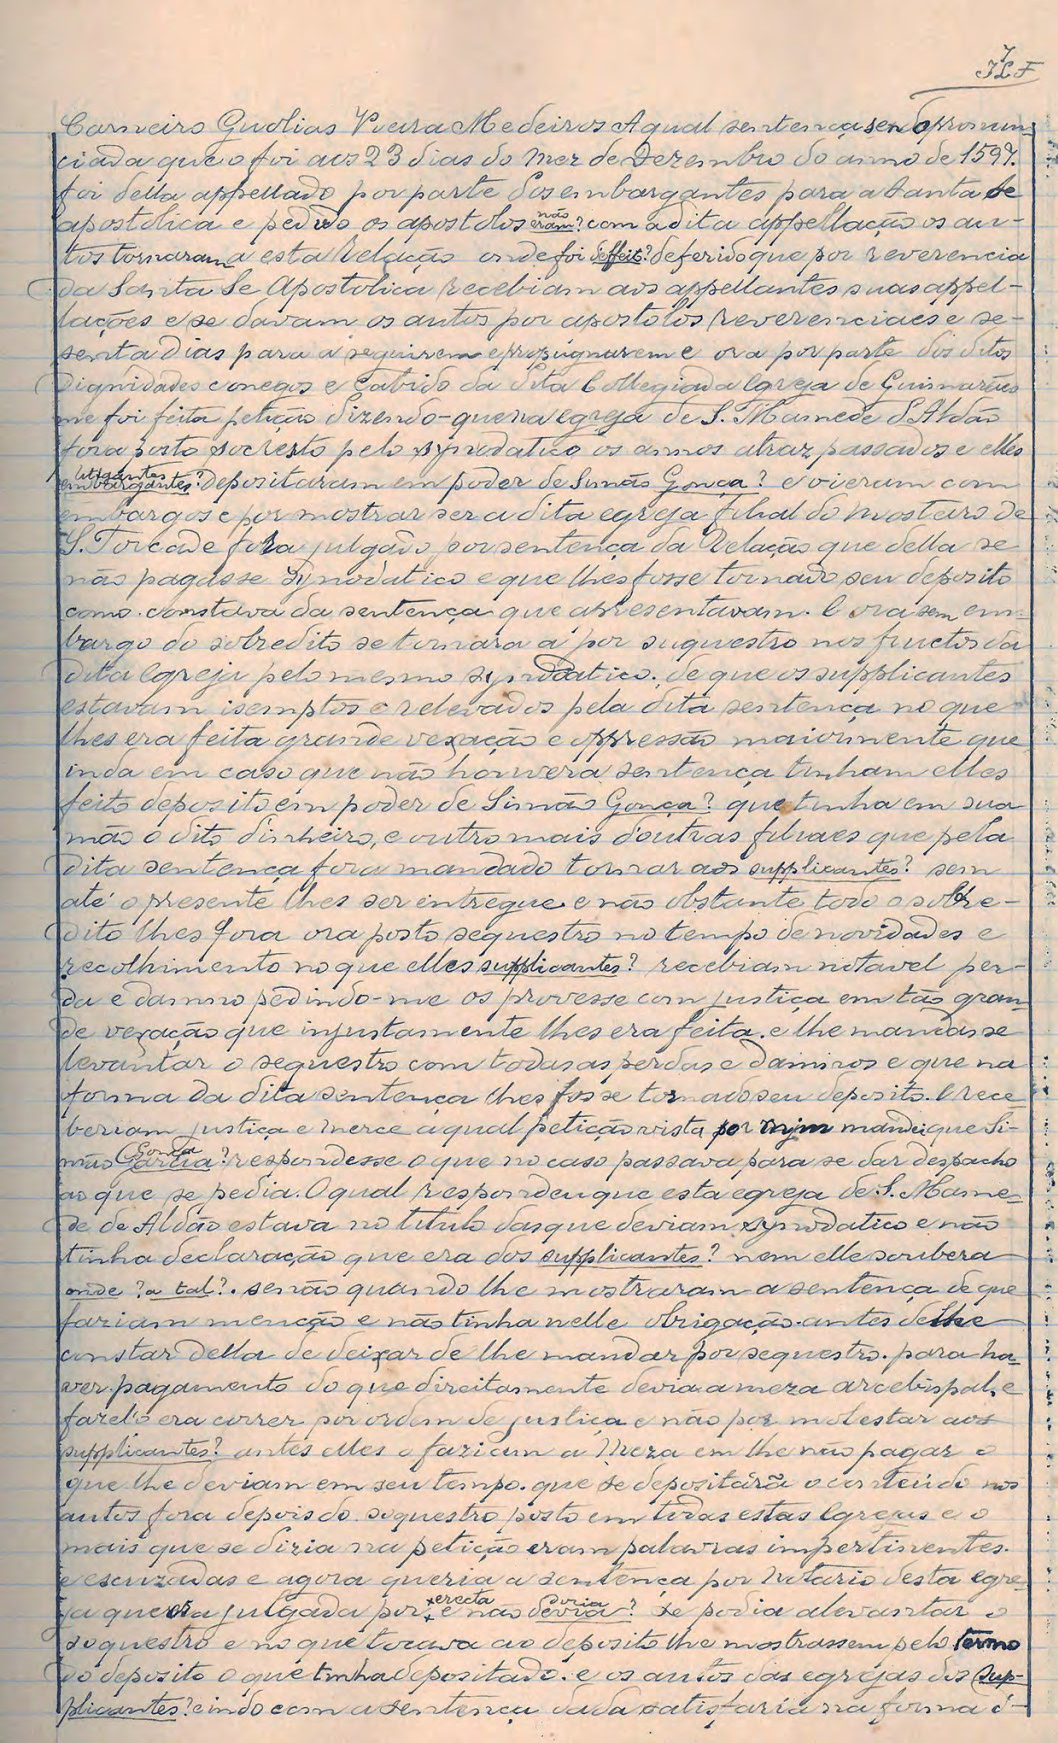 7
JLF
Carneiro Gudlias Vieira Medeiros A qual sentença sendo pronun-
ciada que o foi aos 23 dias do Mez de Dezembro do anno de 1597.
foi della appellado por parte dos embargantes para a Santa Se
apostolica e pedido os apostolos não eram? com a dita appellação os au-
tos tornaram a esta Relação onde foi deffeit? deferido que por reverencia
da Santa Se Apostolica recebiam aos appellantes suas appel-
lações e se davam os autos por apostolos reverenciaes e se-
senta dias para a seguirem e propugnarem e ora por parte dos ditos
Dignidades conegos e Cabido da dita Collegiada Egreja de Guimarães
me foi feita petição dizendo-que na egreja de S. Mamede d'Aldão
fora posto socresto pelo synodatico os annos atraz passados e elles
litigantes embargantes? depositaram em poder de Simão Gonça? e vieram com
embargos e por mostrar ser a dita egreja filial do Mosteiro de
S. Torcade fora julgado por sentença da Relação que della se
não pagasse synodatico e que lhes fosse tornado seu deposito
como constava da sentença que apresentavam. E ora sem em-
bargo do sobredito se tornara a por suquestro nos fructos da
dita Egreja pelo mesmo synodatico, de que os supplicantes
estavam isemptos e relevados pela dita sentença no que
lhes era feita grande vexação e oppressão maiormente que
inda em caso que não houvera sentença tinham elles
feito deposito em poder de Simão Gonça? que tinha em sua
mão o dito dinheiro, e outro mais d'outras filiaes que pela
dita sentença fora mandado tornar aos supplicantes? sem
até o presente lhes ser entregue e não obstante todo o sobre-
dito lhes fora ora posto sequestro no tempo de novidades e
recolhimento no que elles supplicantes? recebiam notavel per-
da e damno pedindo-me os provesse com justiça em tão gran-
de vexação que injustamente lhes era feita. e lhe mandasse
levantar o sequestro com todas as perdas e damnos e que na
forma da dita sentença lhes fosse tornado seu deposito. E rece
beriam justiça e merce a qual petição vista por mjm mandei que Si-
mão Gonça Garcia? respondesse o que no caso passava para se dar despacho
ao que se pedia. O qual respondeu que esta egreja de S. Mame-
de de Aldão estava no titulo das que deviam synodatico e não
tinha declaração que era dos supplicantes? nem elle soubera
onde? a tal?. senão quando lhe mostraram a sentença de que
faziam menção e não tinha nelle obrigação. antes de lhe
constar della de deixar de lhe mandar por sequestro. para ha-
ver pagamento do que direitamente devia a meza arcebispal, e
fazel'o era correr por ordem de justiça e não por molestar aos
supplicantes? antes elles o faziam a Meza em lhe não pagar o
que lhe deviam em seu tempo. que se depositárã o conteúdo nos
autos fora depois do sequestro posto em todas estas Egrejas e o
mais que se dizia na petição eram palavras impertinentes.
e escuzadas e agora queria a sentença por Notario desta egre-
ja que era julgada por erecta e não devia? se podia alevantar o
soquestro e no que tocava ao deposito lhe mostrassem pelo termo
do deposito o que tinha depositado. e os autos das egrejas dos sup-
plicantes? e indo com a sentença dada satisfaria na forma d-